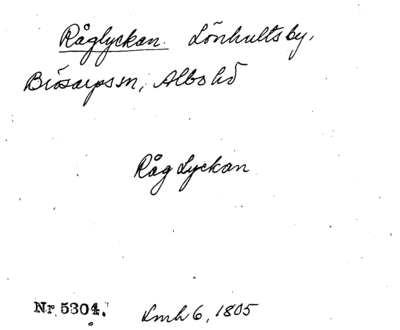 Råglyckan. Lönhults by,
Brösarps sn, Albo hd
Råg Lyckan
Nr 5304. Lmh 6, 1805